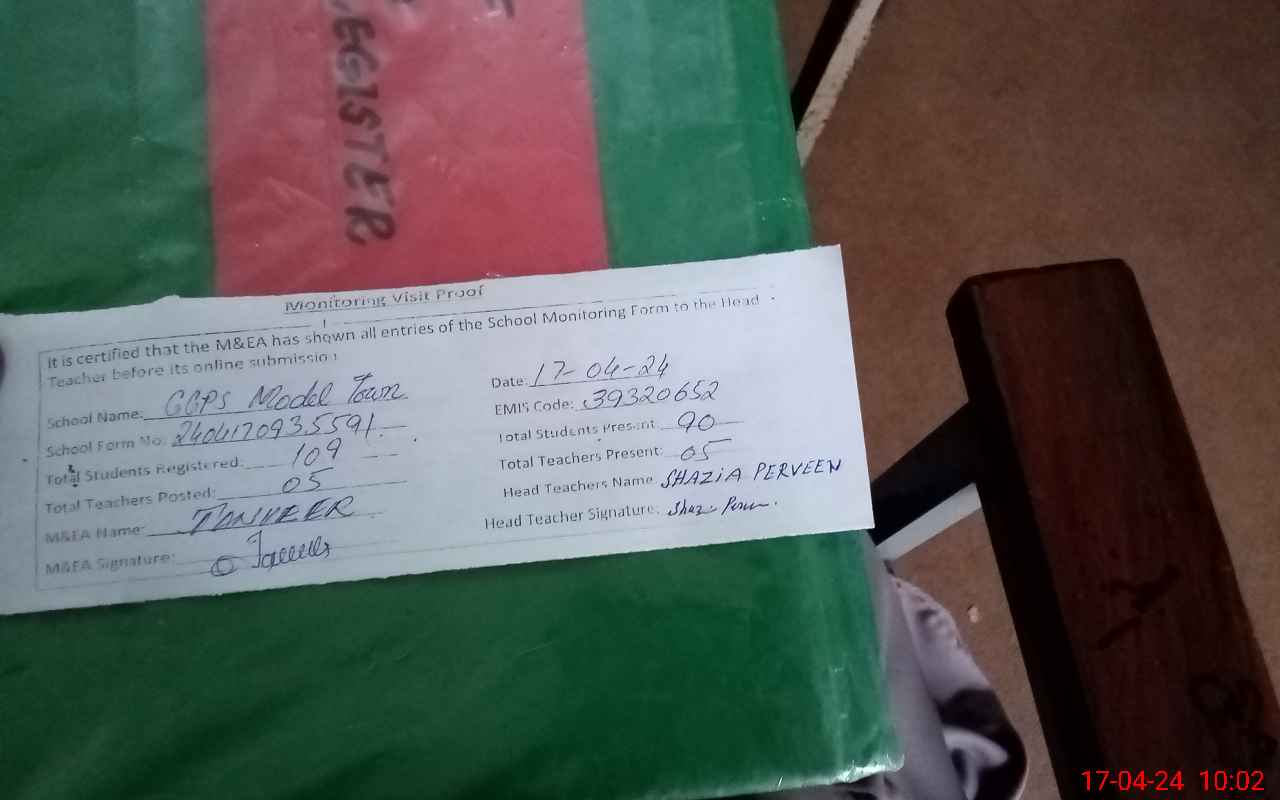 REGISTER
Monitoring Visit Proof
It is certified that the M&EA has shown all entries of the School Monitoring Form to the Head
Teacher before its online submission
School Name: GGPS Model Town
Date: 17-04-24
School Form No: 2404170935591
EMIS Code: 39320652
Total Students Registered: 109
Total Students Present: 90
Total Teachers Posted: 05
Total Teachers Present: 05
M&EA Name: TANVEER
Head Teachers Name SHAZIA PERVEEN
M&EA Signature:
Head Teacher Signature:
17-04-24 10:02